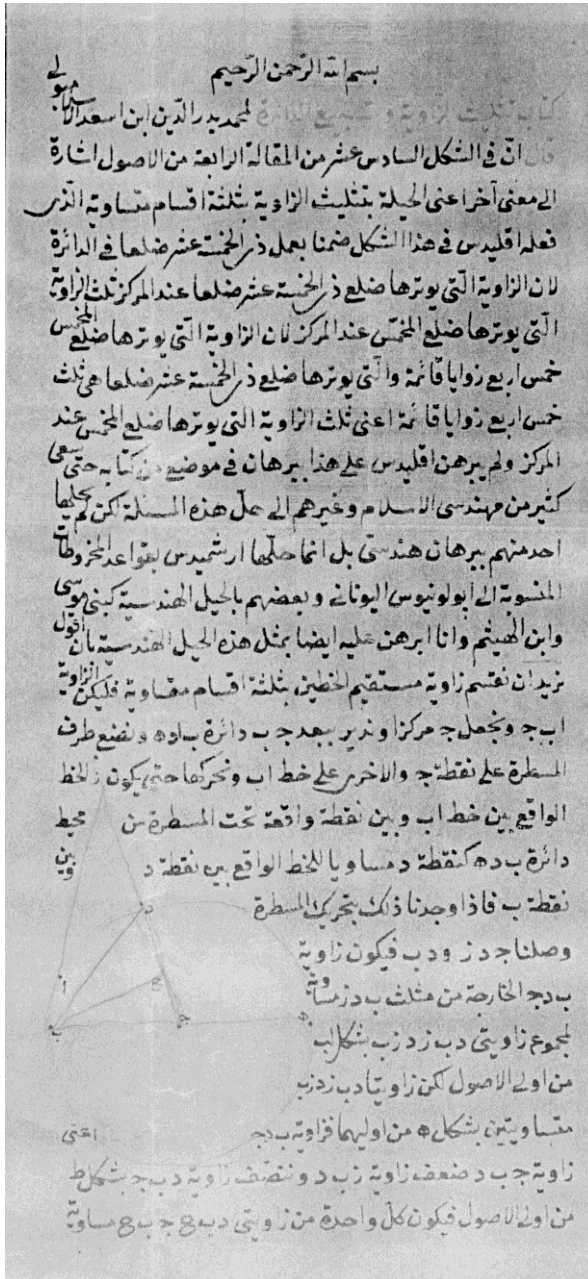 بسم الله الرحمن الرحيم
كتاب تثليث الزاوية لمحمد بدر الدين ابن اسعد الاسلامبولي
قال ان في الشكل السادس عشر من المقالة الرابعة من الاصول اشارة
الى معنى آخر اعنى الحيلة بتثليث الزاوية بثلثة اقسام متساوية الذى
فعله اقليدس في هذا الشكل ضمنا بعمل ذى الخمسة عشر ضلعا في الدائرة
لان الزاوية التي يوترها ضلع ذى الخمسة عشر ضلعا عند المركز ثلث الزاوية
التي يوترها ضلع المخمس عند المركز لان الزاوية التي يوترها ضلع المخمس
خمس اربع زوايا قائمة والتي يوترها ضلع ذى الخمسة عشر ضلعا هى ثلث
خمس اربع زوايا قائمة اعنى ثلث الزاوية التي يوترها ضلع المخمس عند
المركز ولم يبرهن اقليدس على هذا ببرهان في موضع من كتابه حتى سعى
كثير من مهندسى الاسلام وغيرهم الى حل هذه المسئلة لكن لم يحلها
احد منهم ببرهان هندسى بل انما حلها ارشميدس بقواعد المخروطات
المنسوبة الى ابولونيوس اليونانى وبعضهم بالحيل الهندسية كبنى موسى
وابن الهيثم وانا ابرهن عليه ايضا بمثل هذه الحيل الهندسية بان اقول
نريد ان نقسم زاوية مستقيم الخطين بثلثة اقسام متساوية فليكن الزاوية
اب ج ونجعل ج مركزا وندير ببعد ج ب دائرة ب ا د ه ونضع طرف
المسطرة على نقطة ج والاخرى على خط اب ونحركها حتى يكون الخط
الواقع بين خط اب وبين نقطة واقعة تحت المسطرة من محيط
دائرة ب د ه كنقطة د مساويا للخط الواقع بين نقطة د وبين
نقطة ب فاذا وجدنا ذلك بتحريك المسطرة
وصلنا ج د ز و د ب فيكون زاوية
ب د ج الخارجة من مثلث ب د ز مساوية
لمجموع زاويتى د ب ز د ز ب بشكل لب
من اولى الاصول لكن زاويتا د ب ز د ز ب
متساويتين بشكل ه من اوليهما فزاوية ب د ج اعنى
زاوية ج ب د ضعف زاوية ز ب د وننصف زاوية د ب ج بشكل ط
من اولى الاصول فيكون كل واحدة من زاويتى د ب ح ج ب ح مساوية
ز
د
ا
ح
ب
ج
ه